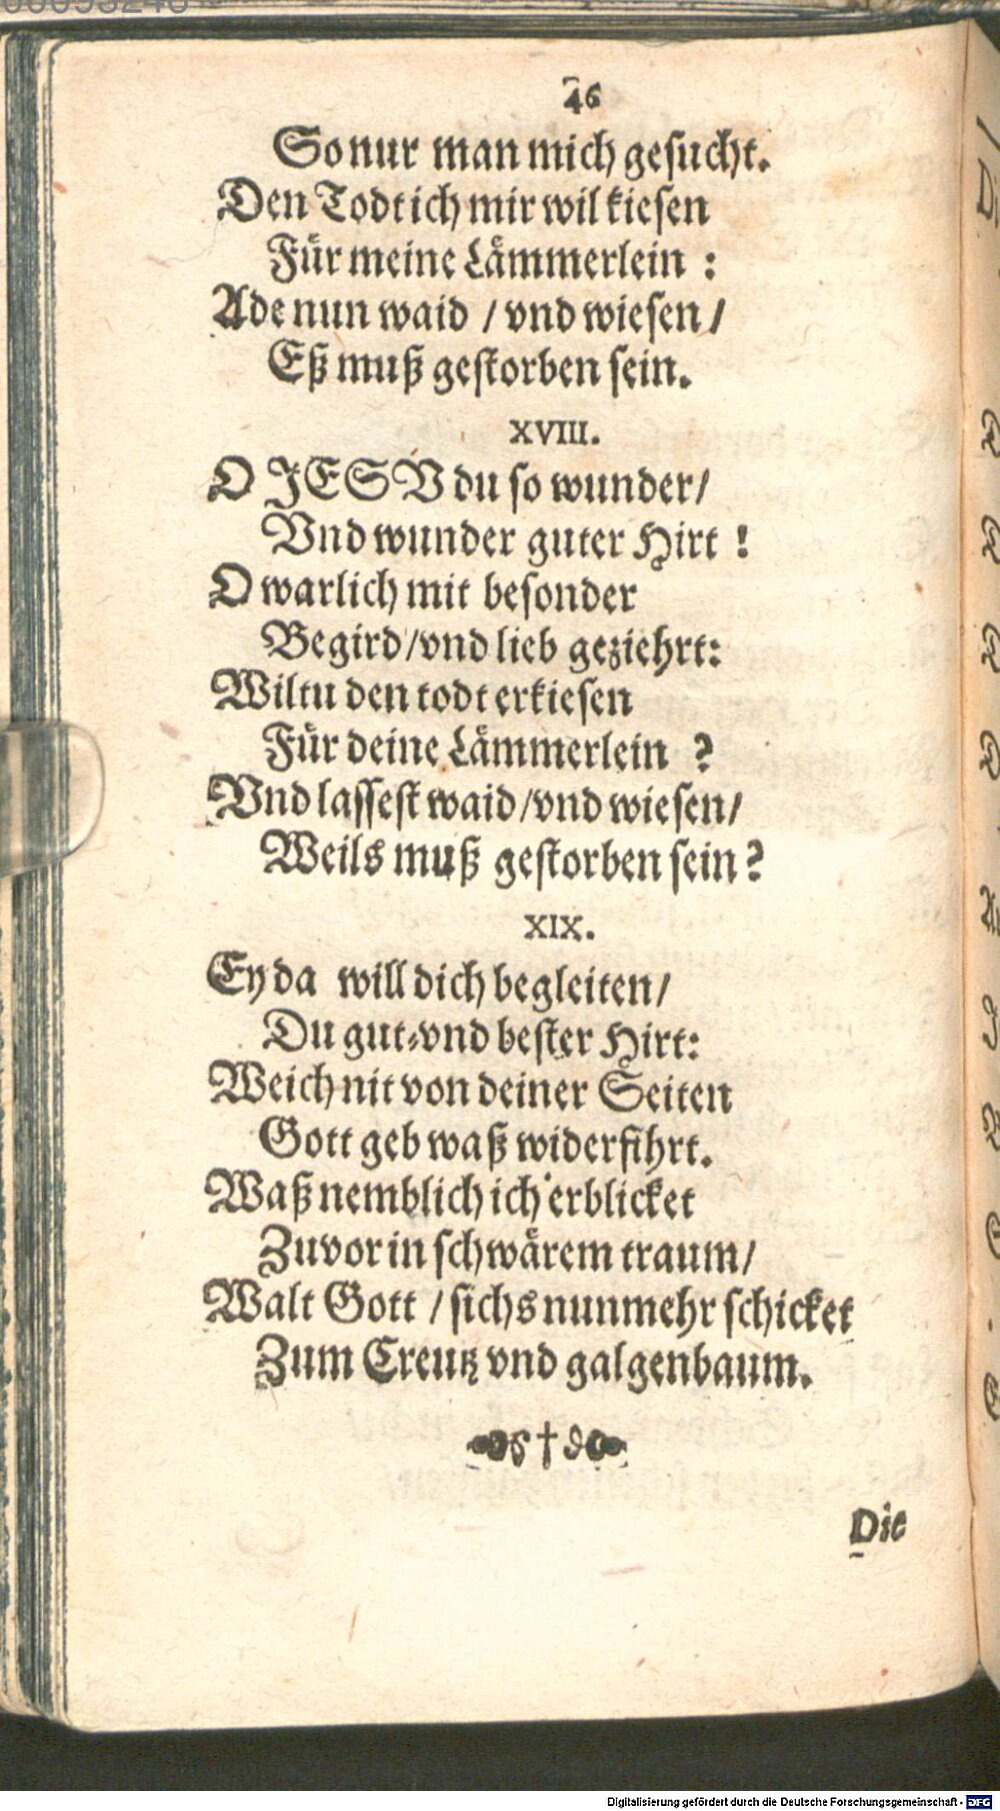 46
So nur man mich gesucht.
Den Todt ich mir wil kiesen
Für meine Lämmerlein :
Ade nun waid / vnd wiesen /
Eß muß gestorben sein.
XVIII.
O JESV du so wunder /
Vnd wunder guter Hirt !
O warlich mit besonder
Begird / vnd lieb geziehrt:
Wiltu den todt erkiesen
Für deine Lämmerlein ?
Vnd lassest waid / vnd wiesen /
Weils muß gestorben sein?
XIX.
Ey da will dich begleiten /
Du gut-vnd bester Hirt:
Weich nit von deiner Seiten
Gott geb waß widerfihrt.
Waß nemblich ich erblicket
Zuvor in schwärem traum /
Walt Gott / sichs nunmehr schicket
Zum Creutz vnd galgenbaum.
Die
Digitalisierung gefördert durch die Deutsche Forschungsgemeinschaft - DFG